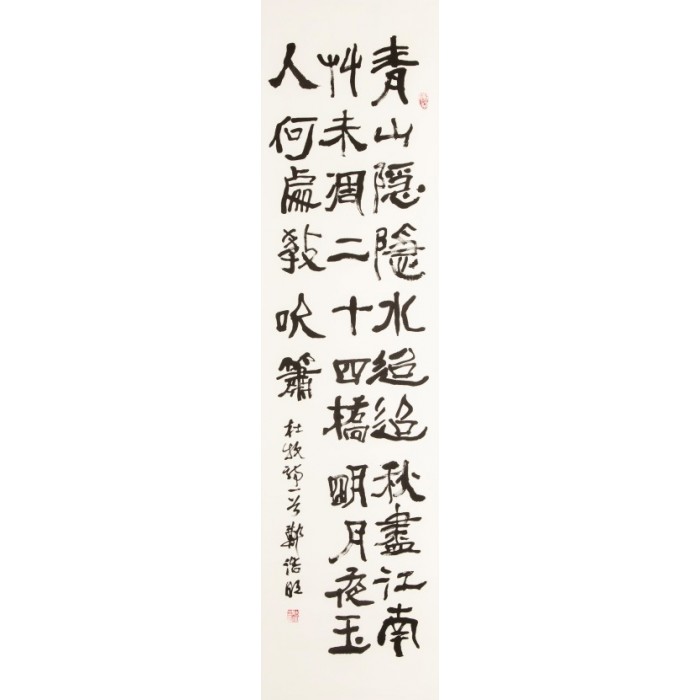 青山隱隱水迢迢秋盡江南
艸未凋二十四橋明月夜玉
人何處教吹簫
杜牧詩一首鄭浩旺